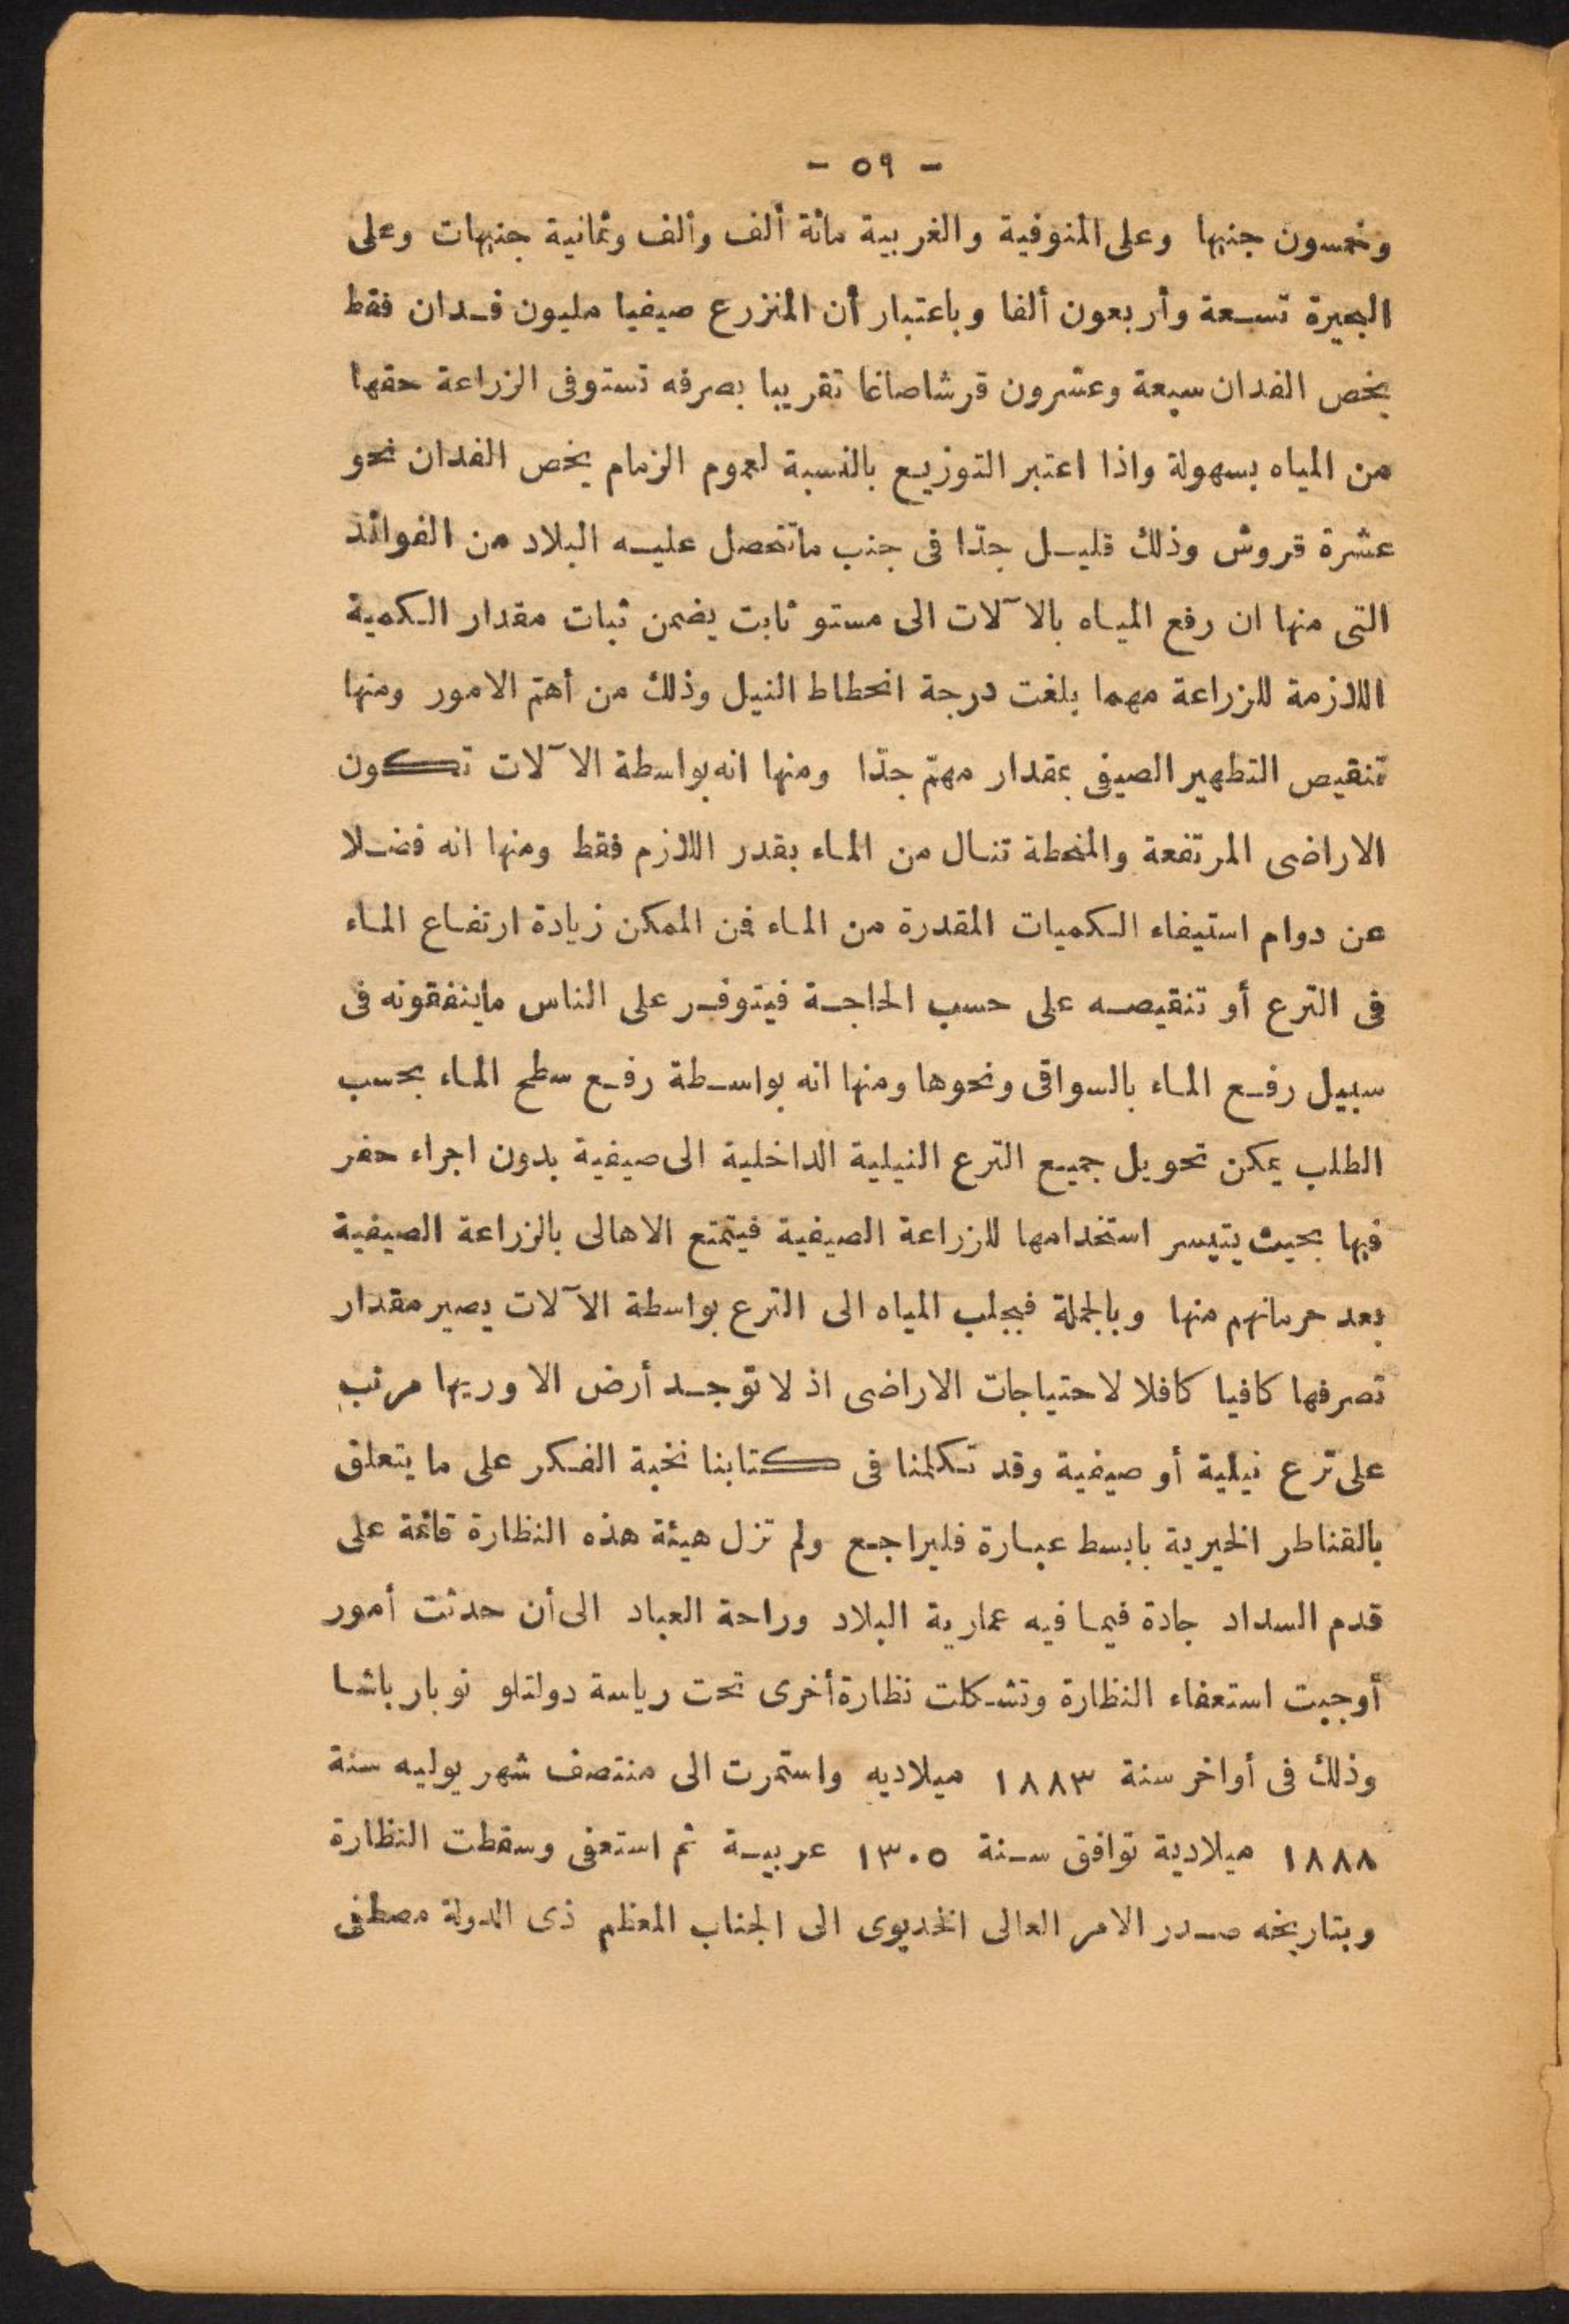 - ٥٩ -
وخمسون جنيها وعلى المنوفية والغربية مائة ألف وألف وثمانية جنيهات وعلى
البحيرة تسعة وأربعون ألفا وباعتبار أن المنزرع صيفيا مليون فدان فقط
يخص الفدان سبعة وعشرون قرشا صاغا تقريبا بصرفه تستوفى الزراعة حقها
من المياه بسهولة واذا اعتبر التوزيع بالنسبة لعموم الزمام يخص الفدان نحو
عشرة قروش وذلك قليل جدّا فى جنب ما تتحصل عليه البلاد من الفوائد
التى منها ان رفع المياه بالآلات الى مستو ثابت يضمن ثبات مقدار الكمية
اللازمة للزراعة مهما بلغت درجة انحطاط النيل وذلك من أهمّ الامور ومنها
تنقيص التطهير الصيفى بمقدار مهمّ جدّا ومنها انه بواسطة الآلات تكون
الاراضى المرتفعة والمنحطة تنال من الماء بقدر اللازم فقط ومنها انه فضلا
عن دوام استيفاء الكميات المقدرة من الماء فمن الممكن زيادة ارتفاع الماء
فى الترع أو تنقيصه على حسب الحاجة فيتوفر على الناس ما ينفقونه فى
سبيل رفع الماء بالسواقى ونحوها ومنها انه بواسطة رفع سطح الماء بحسب
الطلب يمكن تحويل جميع الترع النيلية الداخلية الى صيفية بدون اجراء حفر
فيها بحيث يتيسر استخدامها للزراعة الصيفية فيتمتع الاهالى بالزراعة الصيفية
بعد حرمانهم منها وبالجملة فبجلب المياه الى الترع بواسطة الآلات يصير مقدار
تصرفها كافيا كافلا لاحتياجات الاراضى اذ لا توجد أرض الا وريها مرتب
على ترع نيلية أو صيفية وقد تكلمنا فى كتابنا نخبة الفكر على ما يتعلق
بالقناطر الخيرية بابسط عبارة فليراجع ولم تزل هيئة هذه النظارة قائمة على
قدم السداد جادة فيما فيه عمارية البلاد وراحة العباد الى أن حدثت أمور
أوجبت استعفاء النظارة وتشكلت نظارة أخرى تحت رياسة دولتلو نوبار باشا
وذلك فى أواخر سنة ١٨٨٣ ميلاديه واستمرت الى منتصف شهر يوليه سنة
١٨٨٨ ميلادية توافق سنة ١٣٠٥ عربية ثم استعفى وسقطت النظارة
وبتاريخه صدر الامر العالى الخديوى الى الجناب المعظم ذى الدولة مصطفى